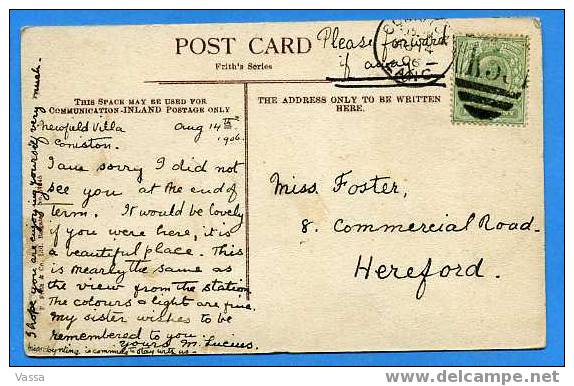 POST CARD
Frith's Series
Please forward
if away
THIS SPACE MAY BE USED FOR
COMMUNICATION-INLAND POSTAGE ONLY
THE ADDRESS ONLY TO BE WRITTEN
HERE.
Villa
Coniston.
Aug 14th
1906.
I am sorry I did not
see you at the end of
term. It would be lovely
if you were here, it is
a beautiful place. This
is nearly the same as
the view from the station
The colours & light are fine.
My sister wishes to be
remembered to you.
yours M. Lucies.
is coming to stay with us.
I hope you are enjoying yourself very much.
Miss. Foster,
8. Commercial Road.
Hereford.
Vassa
delcampe.net